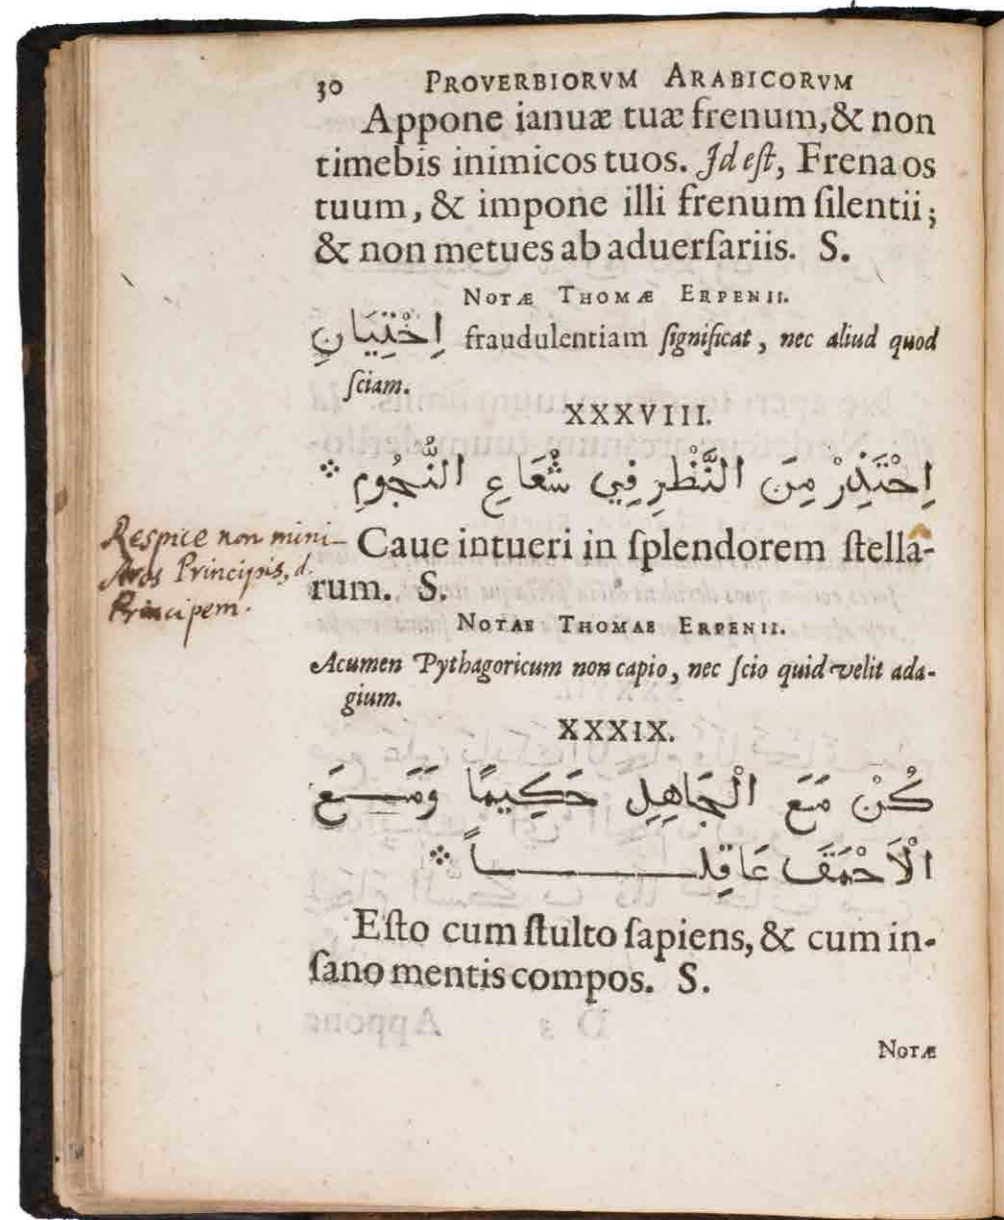 30 PROVERBIORVM ARABICORVM
Appone ianuæ tuæ frenum, & non
timebis inimicos tuos. Id eſt, Frena os
tuum, & impone illi frenum ſilentii;
& non metues ab aduerſariis. S.
NOTÆ THOMÆ ERPENII.
اِخْتِيَانِ fraudulentiam ſignificat, nec aliud quod
ſciam.
XXXVIII.
اِحْتَذِرْ مِنَ النَّظْرِ فِي شُعَاعِ النُّجُومِ
Respice non mini-
stros Principis, d.
Principem.
Caue intueri in ſplendorem ſtella-
rum. S.
NOTAE THOMAE ERPENII.
Acumen Pythagoricum non capio, nec ſcio quid velit ada-
gium.
XXXIX.
كُنْ مَعَ الْجَاهِلِ حَكِيمًا وَمَعَ
الْاَحْمَقَ عَاقِلاً
Eſto cum ſtulto ſapiens, & cum in-
ſano mentis compos. S.
NOTÆ